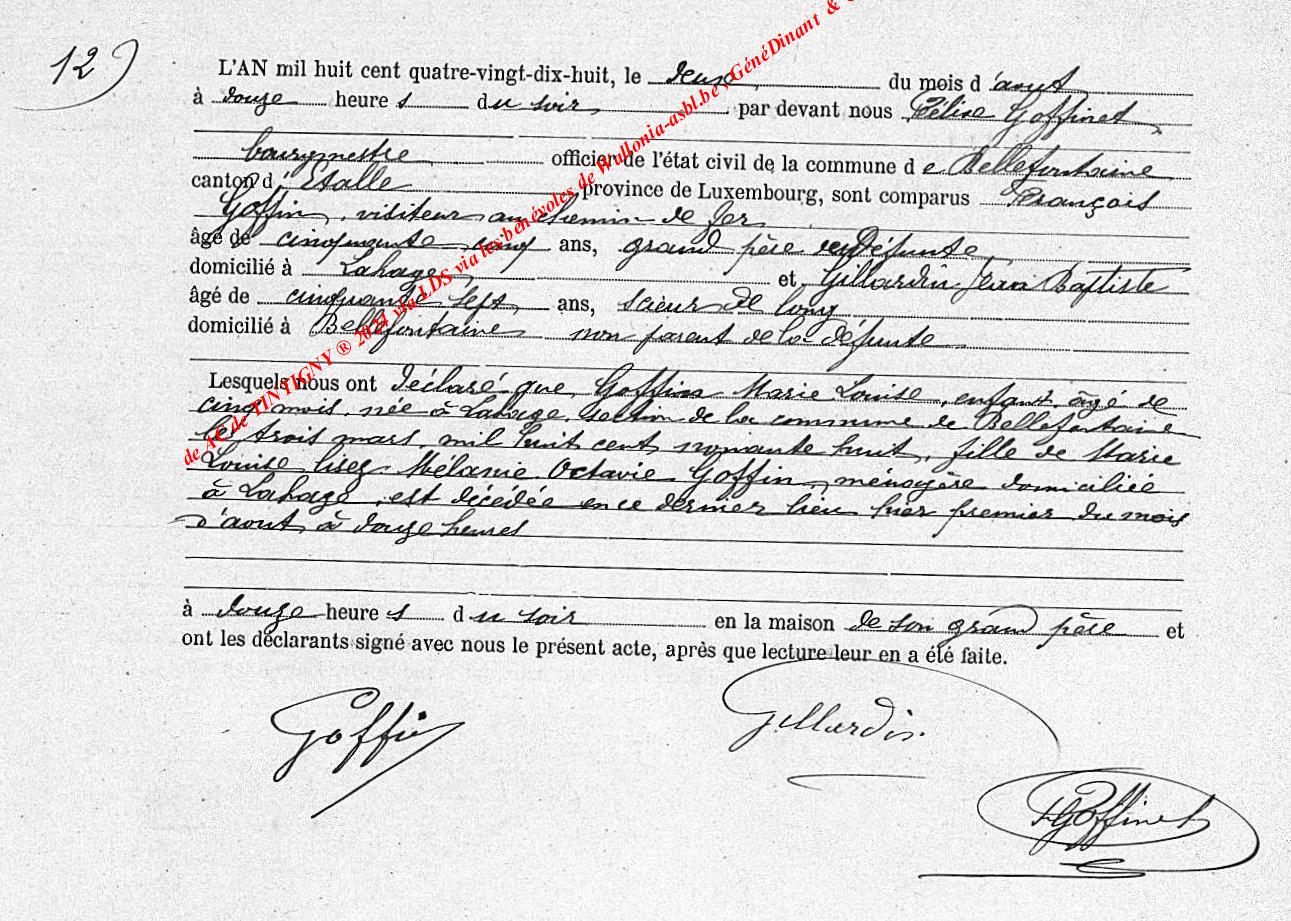 12)
L'AN mil huit cent quatre-vingt-dix-huit, le deux, du mois d'aout
à douze heures du soir, par devant nous Félise Goffinet,
bourgmestre officier de l'état civil de la commune de Bellefontaine
canton d'Etalle province de Luxembourg, sont comparus François
Goffin, visiteur au chemin de fer
âgé de cinquante cinq ans, grand père de la défunte,
domicilié à Lahage, et Gillardin Jean Baptiste
âgé de cinquante sept, ans, scieur de long
domicilié à Bellefontaine non parent de la défunte
Lesquels nous ont déclaré que Goffin Marie Louise, enfant, âgé de
cinq mois, née à Lahage, section de la commune de Bellefontaine
le trois mars, mil huit cent nonante huit, fille de Marie
Louise lisez Mélanie Octavie Goffin, ménagère domiciliée
à Lahage, est décédée en ce dernier lieu hier premier du mois
d'aout, à douze heures
à douze heures du soir en la maison de son grand père et
ont les déclarants signé avec nous le présent acte, après que lecture leur en a été faite.
Goffin
Gillardin
FGoffinet
de AC de TINTIGNY ® 2024 via LDS via les bénévoles de Wallonia-asbl.be , GénéDinant &